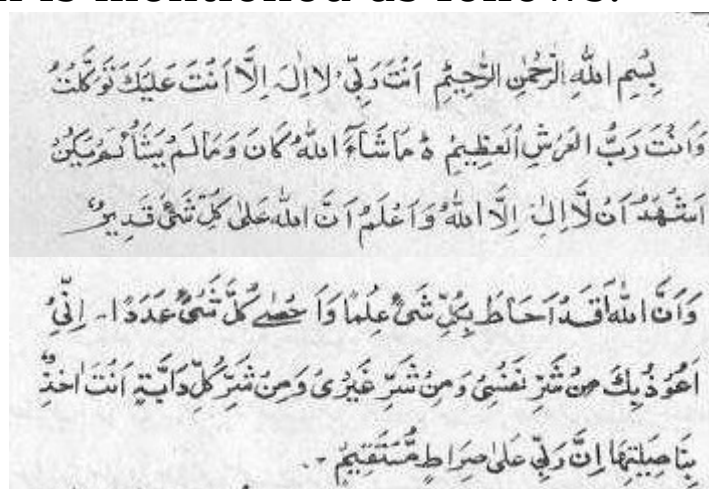 is mentioned as follows:
بِسْمِ اللّٰهِ الرَّحْمٰنِ الرَّحِيْمِ اَنْتَ رَبِّىْ لَا اِلٰهَ اِلَّا اَنْتَ عَلَيْكَ تَوَكَّلْتُ
وَاَنْتَ رَبُّ الْعَرْشِ الْعَظِيْمِ ہ مَاشَآءَ اللّٰهُ كَانَ وَمَالَمْ يَشَأْ لَمْ يَكُنْ
اَشْهَدُ اَنْ لَّا اِلٰهَ اِلَّا اللّٰهُ وَاَعْلَمُ اَنَّ اللّٰهَ عَلٰى كُلِّ شَىْءٍ قَدِيْرٌ
وَاَنَّ اللّٰهَ قَدْ اَحَاطَ بِكُلِّ شَىْءٍ عِلْمًا وَاَحْصٰے كُلَّ شَىْءٍ عَدَدًا۔ اِنِّىْ
اَعُوْذُ بِكَ مِنْ شَرِّ نَفْسِىْ وَمِنْ شَرِّ غَيْرِىْ وَمِنْ شَرِّ كُلِّ دَآبَّةٍ اَنْتَ اٰخِذٌ
بِنَاصِيَتِهَا اِنَّ رَبِّىْ عَلٰى صِرَاطٍ مُّسْتَقِيْمٍ ۔